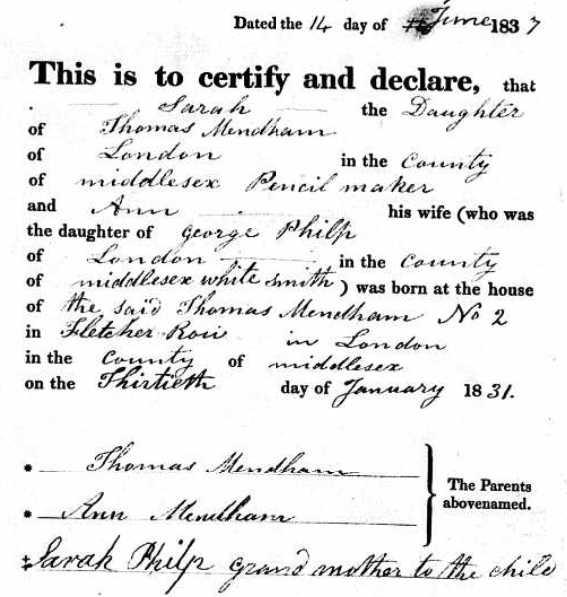 Dated the 14 day of June 1837
This is to certify and declare, that
Sarah the Daughter
of Thomas Mendham
of London in the County
of middlesex Pencil maker
and Ann his wife (who was
the daughter of george Philp
of London in the County
of middlesex white smith) was born at the house
of the said Thomas Mendham No 2
in Fletcher Row in London
in the County of middlesex
on the Thirtieth day of January 1831.
* Thomas Mendham
The Parents
abovenamed.
* Ann Mendham
‡ Sarah Philp grand mother to the child